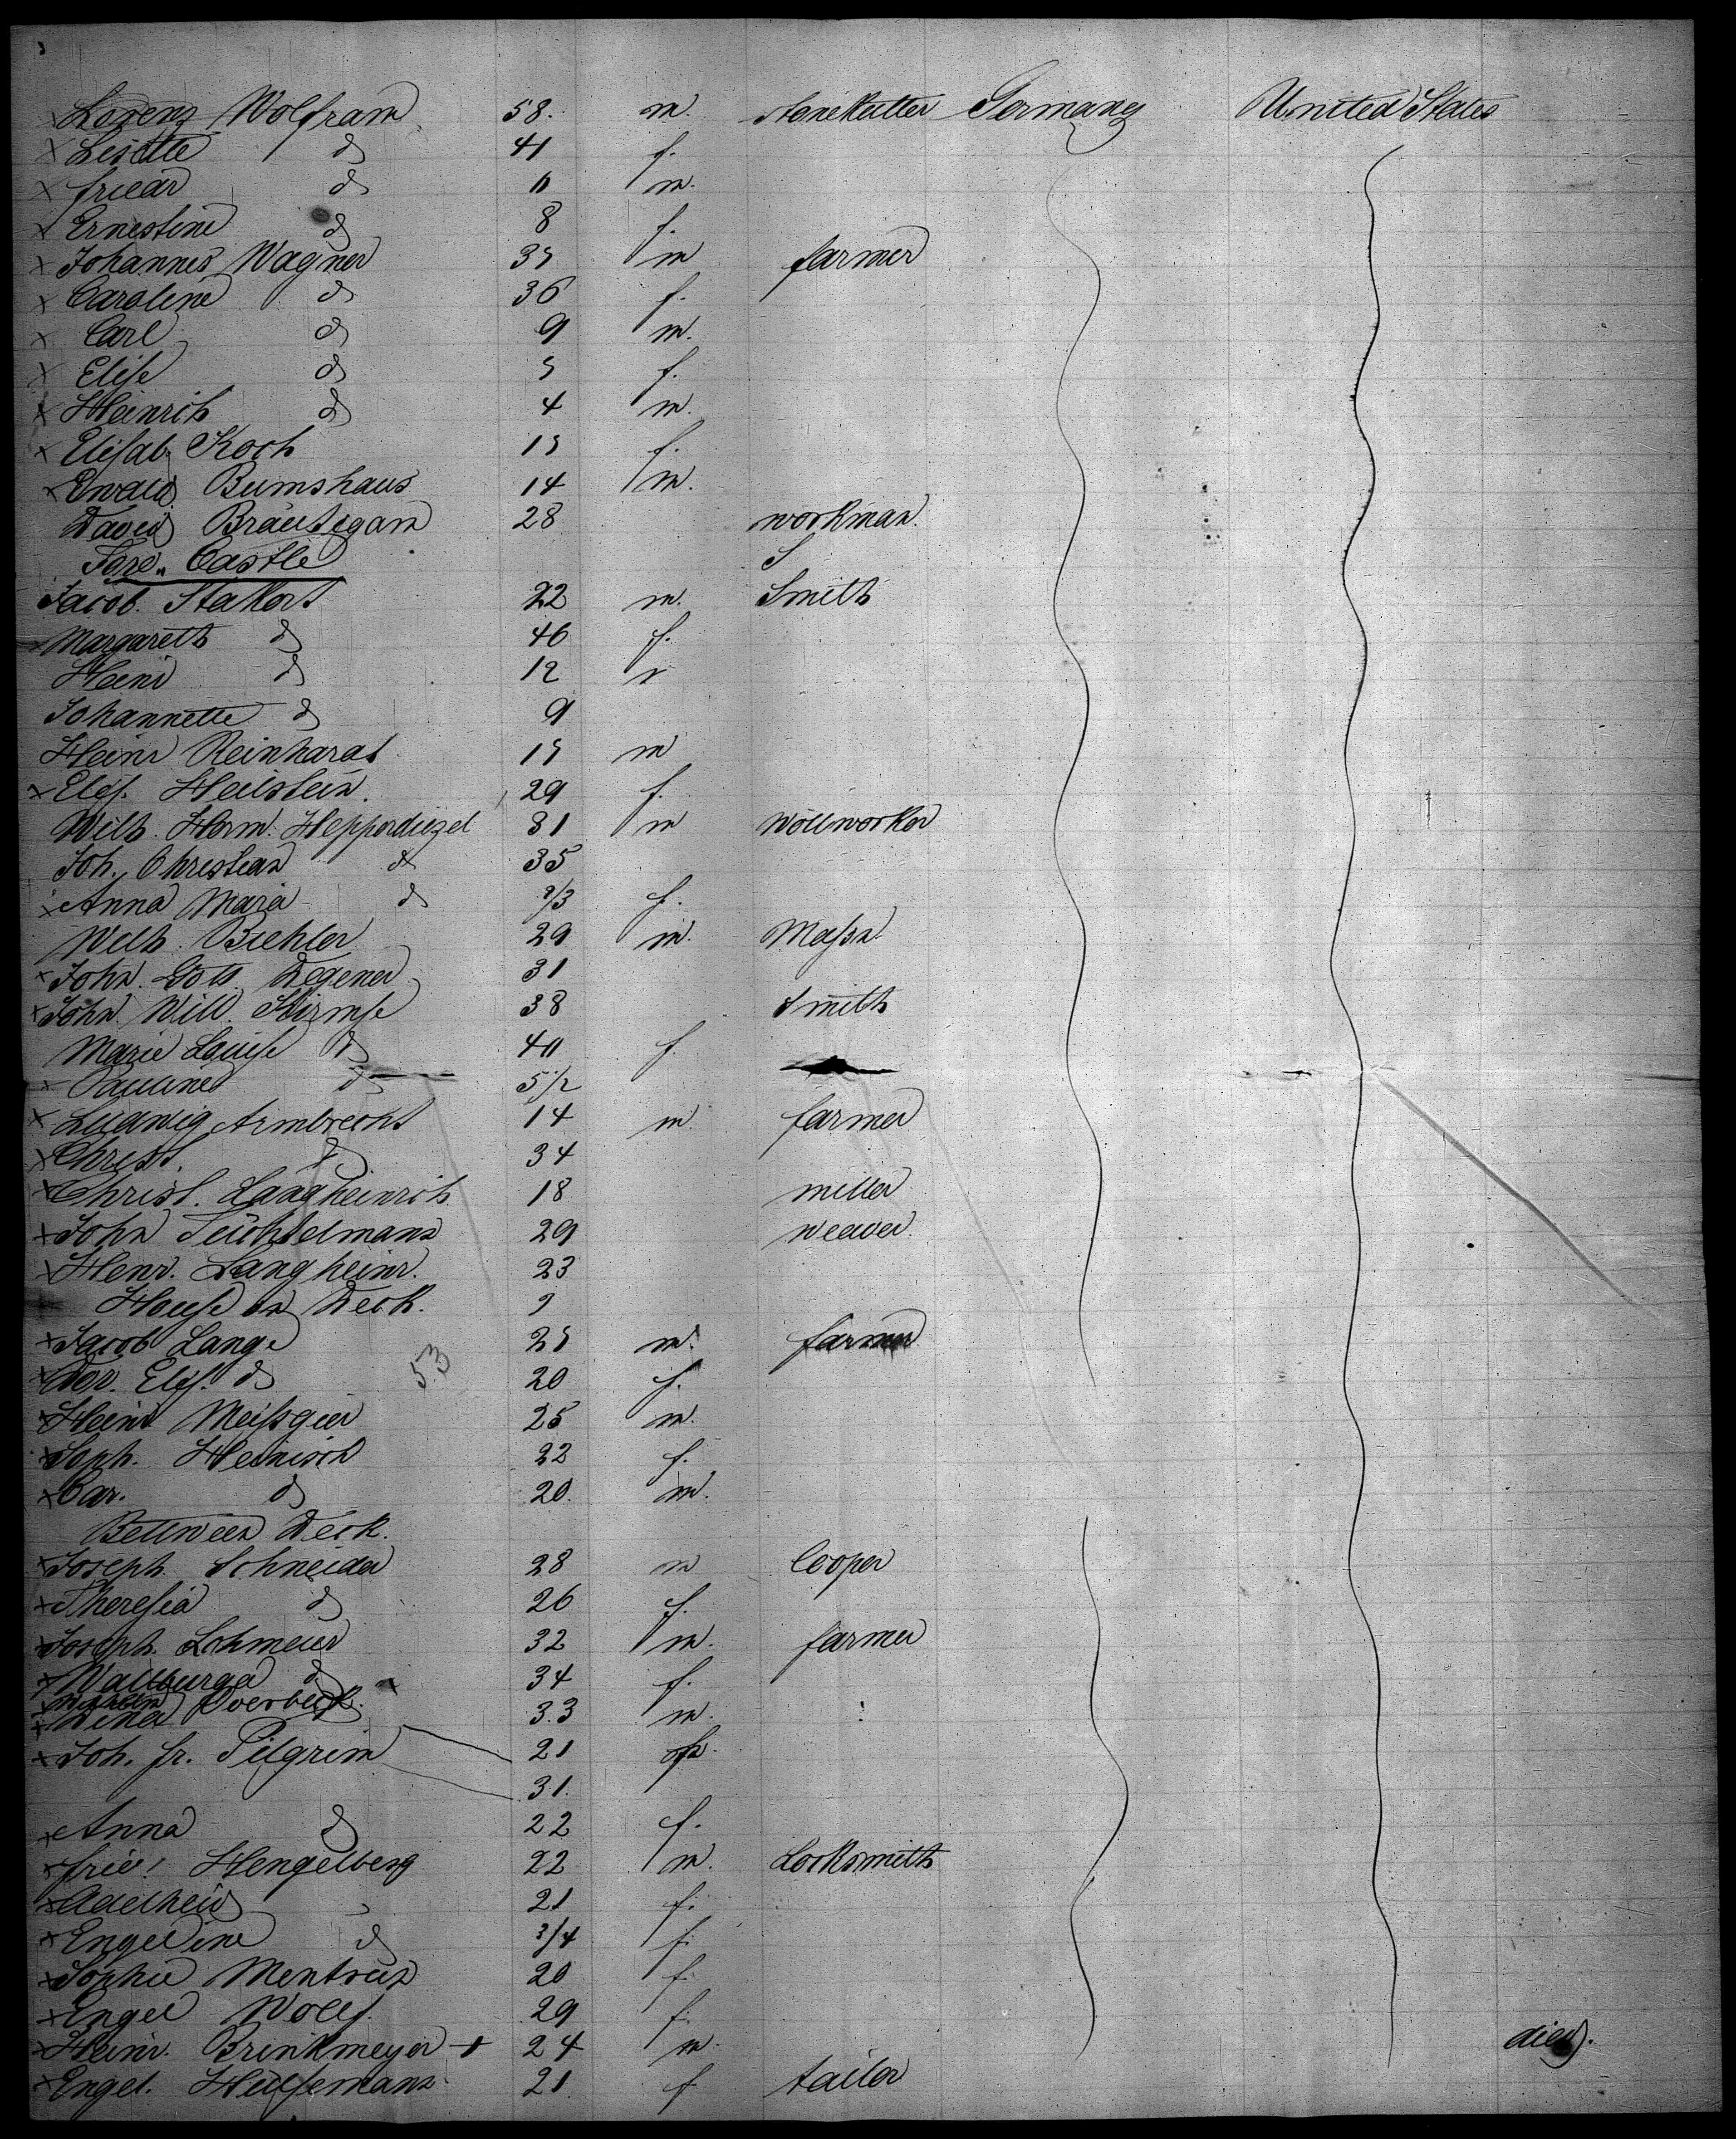 Lorenz Wolfram 58. m. stonekutter Germany United States
Lisette do 41 f.
friedr do 11 m.
Ernestine do 8 f.
Johannes Wagner 35 m farmer
Caroline do 36 f.
Carl do 9 m.
Elise do 5 f.
Heinrich do 4 m.
Elisab. Koch 15 f.
Ewald Bumshaus 14 m.
David Bräutigam 28 workman.
Fore. Castle
Jacob. Stakert 22 m. Smith
Margareth do 46 f.
Heinr do 12
Johannette do 9
Heinr Reinhardt 15 m
Elis. Heilstein. 29 f.
Wilh. Herm. Hepperdiezel 31 m Wollworker
Joh. Christian do 35
Anna Maria do 2/3 f.
Wilh. Biehler 29 m. Mason
John. Gott. Degener 31
John Will. Stirmse 38 Smith
Marie Louise do 40 f.
Pauline do 5 1/2
Ludwig Armbrecht 14 m farmer
Christ. do 34
Christ. Langheinrich. 18 miller
John Teichtelmann 29 weaver.
Henr. Langheinr. 23
House on Deck.
Jacob Lange 25 m. farmer
Dor. Elis. do 20 f.
53
Heinr Meissgeier 25 m.
Soph. Heinisch 22 f.
Car. do 20. m.
Bettween Deck.
Joseph Schneider 28 m Cooper
Theresia do 26 f.
Joseph. Lohmeier 32 m. farmer
Wallburga do 34 f.
Wilhelm Overbeck. 33 m.
Joh. fr. Pilgrim 21
31.
Anna do 22 f.
fried. Hengelberg 22 m. Locksmith
Adelheid 21 f.
Engeline do 3/4 f.
Sophie Mentrup 20 f.
Engel Wolf. 29 f.
Heinr. Brinkmeyer + 24 m. died.
Engel. Hülsemann 21 f tailor